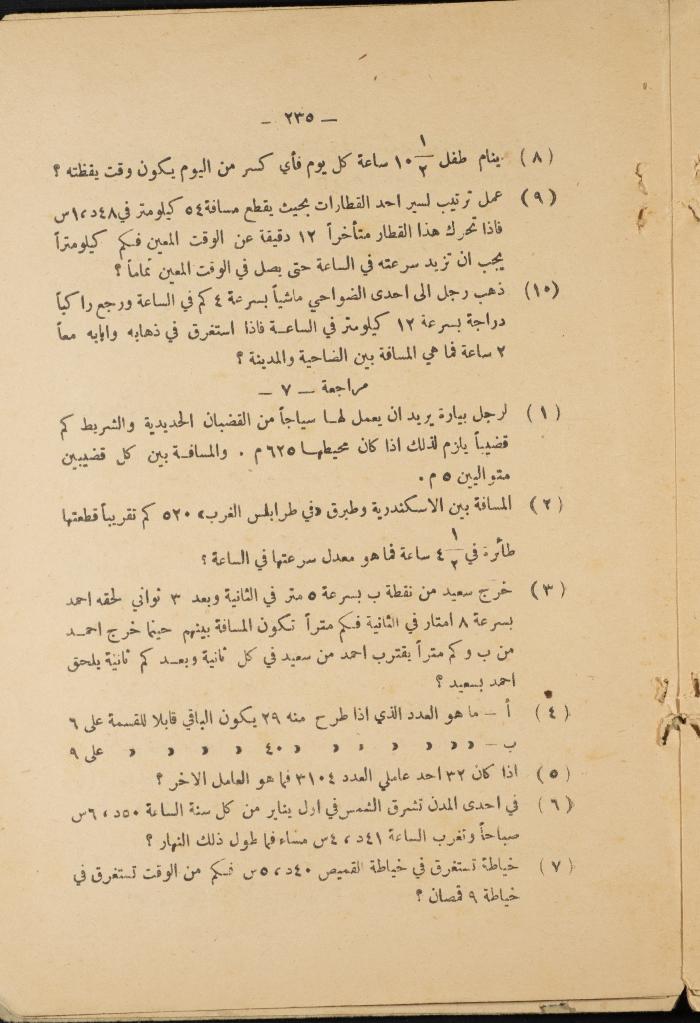 — ٢٣٥ —
(٨) ينام طفل ١٠ ١/٢ ساعة كل يوم فأي كسر من اليوم يكون وقت يقظته ؟
(٩) عمل ترتيب لسير احد القطارات بحيث يقطع مسافة ٥٤ كيلومتر في ٤٨د،١س
فاذا تحرك هذا القطار متأخراً ١٢ دقيقة عن الوقت المعين فكم كيلومتراً
يجب ان تزيد سرعته في الساعة حتى يصل في الوقت المعين تماماً ؟
(١٠) ذهب رجل الى احدى الضواحي ماشياً بسرعة ٤ كم في الساعة ورجع راكباً
دراجة بسرعة ١٢ كيلومتر في الساعة فاذا استغرق في ذهابه وايابه معاً
٢ ساعة فما هي المسافة بين الضاحية والمدينة ؟
مراجعة — ٧ —
(١) لرجل بيارة يريد ان يعمل لها سياجاً من القضبان الحديدية والشريط كم
قضيباً يلزم لذلك اذا كان محيطها ٦٢٥ م . والمسافة بين كل قضيبين
متواليين ٥ م .
(٢) المسافة بين الاسكندرية وطبرق «في طرابلس الغرب» ٥٢٠ كم تقريباً قطعتها
طائرة في ٤ ١/٢ ساعة فما هو معدل سرعتها في الساعة ؟
(٣) خرج سعيد من نقطة ب بسرعة ٥ متر في الثانية وبعد ٣ ثواني لحقه احمد
بسرعة ٨ امتار في الثانية فكم متراً تكون المسافة بينهم حينما خرج احمد
من ب وكم متراً يقترب احمد من سعيد في كل ثانية وبعد كم ثانية يلحق
احمد بسعيد ؟
(٤) أ — ما هو العدد الذي اذا طرح منه ٢٩ يكون الباقي قابلا للقسمة على ٦
ب — » » » » » » ٤٠ » » » » على ٩
(٥) اذا كان ٣٢ احد عاملي العدد ٣١٠٤ فما هو العامل الاخر ؟
(٦) في احدى المدن تشرق الشمس في اول يناير من كل سنة الساعة ٥٠د،٦س
صباحاً وتغرب الساعة ٤١د،٤س مساء فما طول ذلك النهار ؟
(٧) خياطة تستغرق في خياطة القميص ٤٠د،٥س فكم من الوقت تستغرق في
خياطة ٩ قمصان ؟